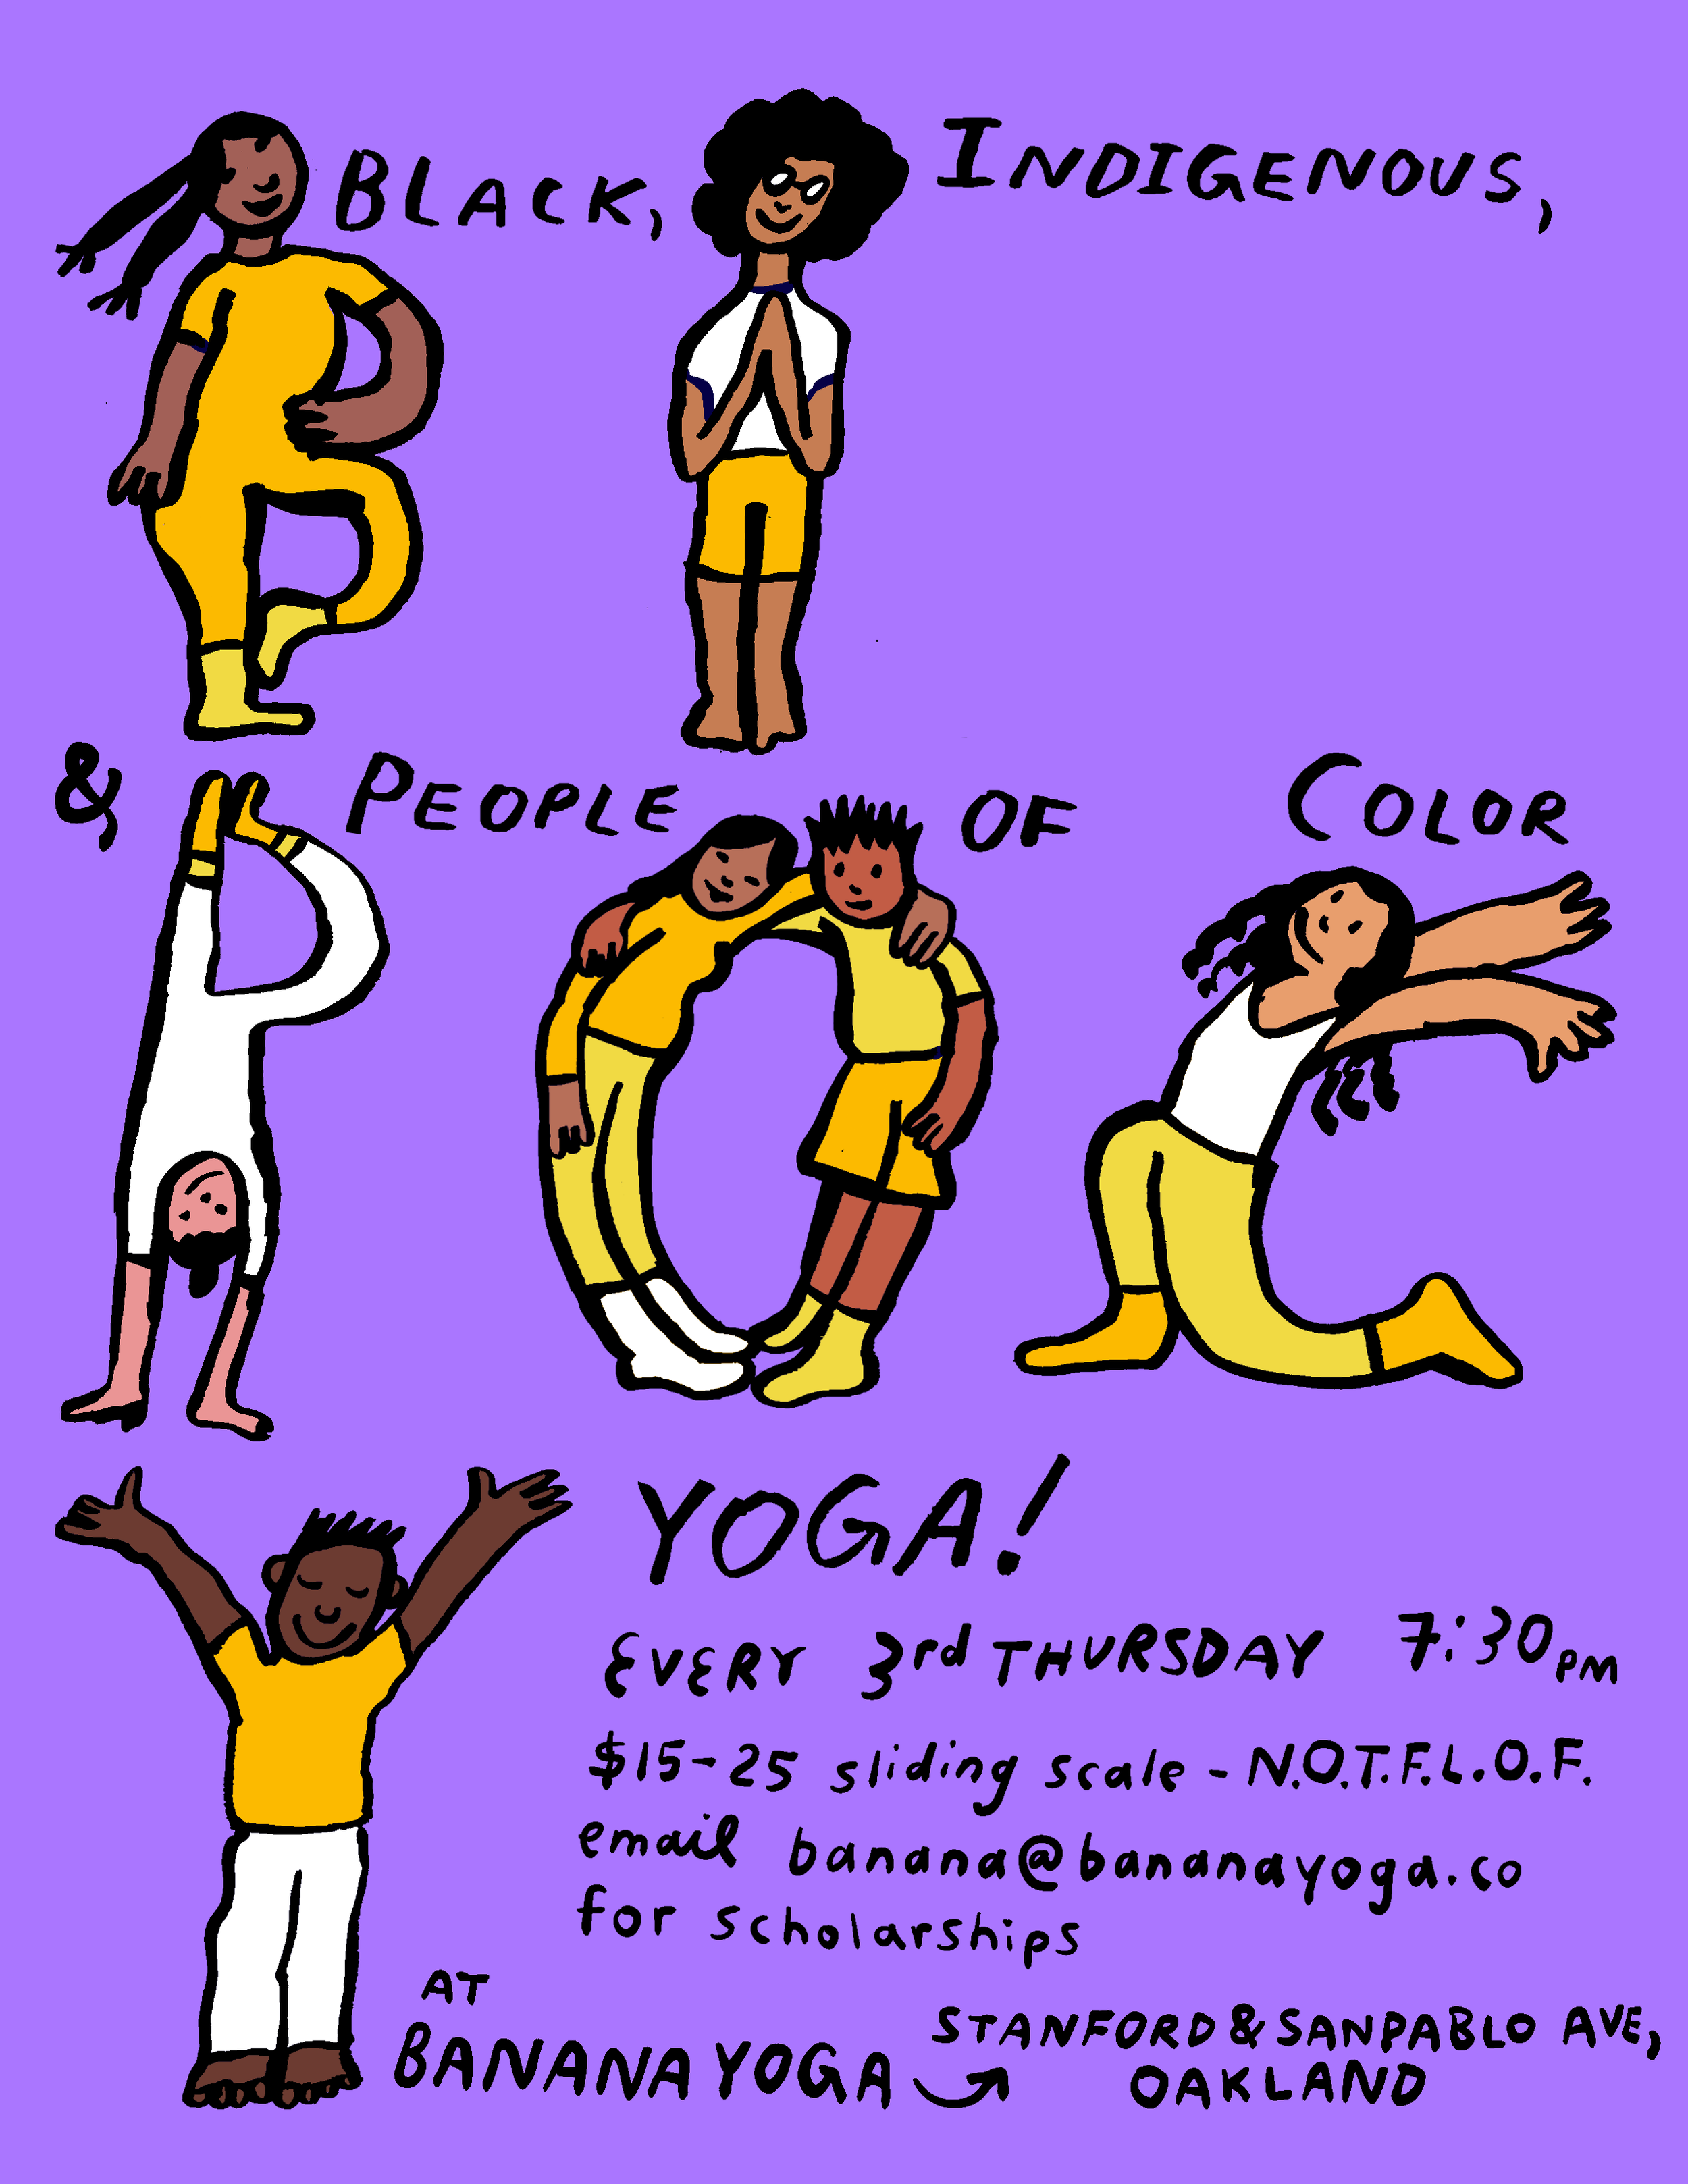 BLACK, INDIGENOUS,
& PEOPLE OF COLOR
YOGA!
EVERY 3rd THURSDAY 7:30PM
$15-25 sliding scale - N.O.T.F.L.O.F.
email banana@bananayoga.co
for scholarships
AT
BANANA YOGA
STANFORD & SANPABLO AVE,
OAKLAND